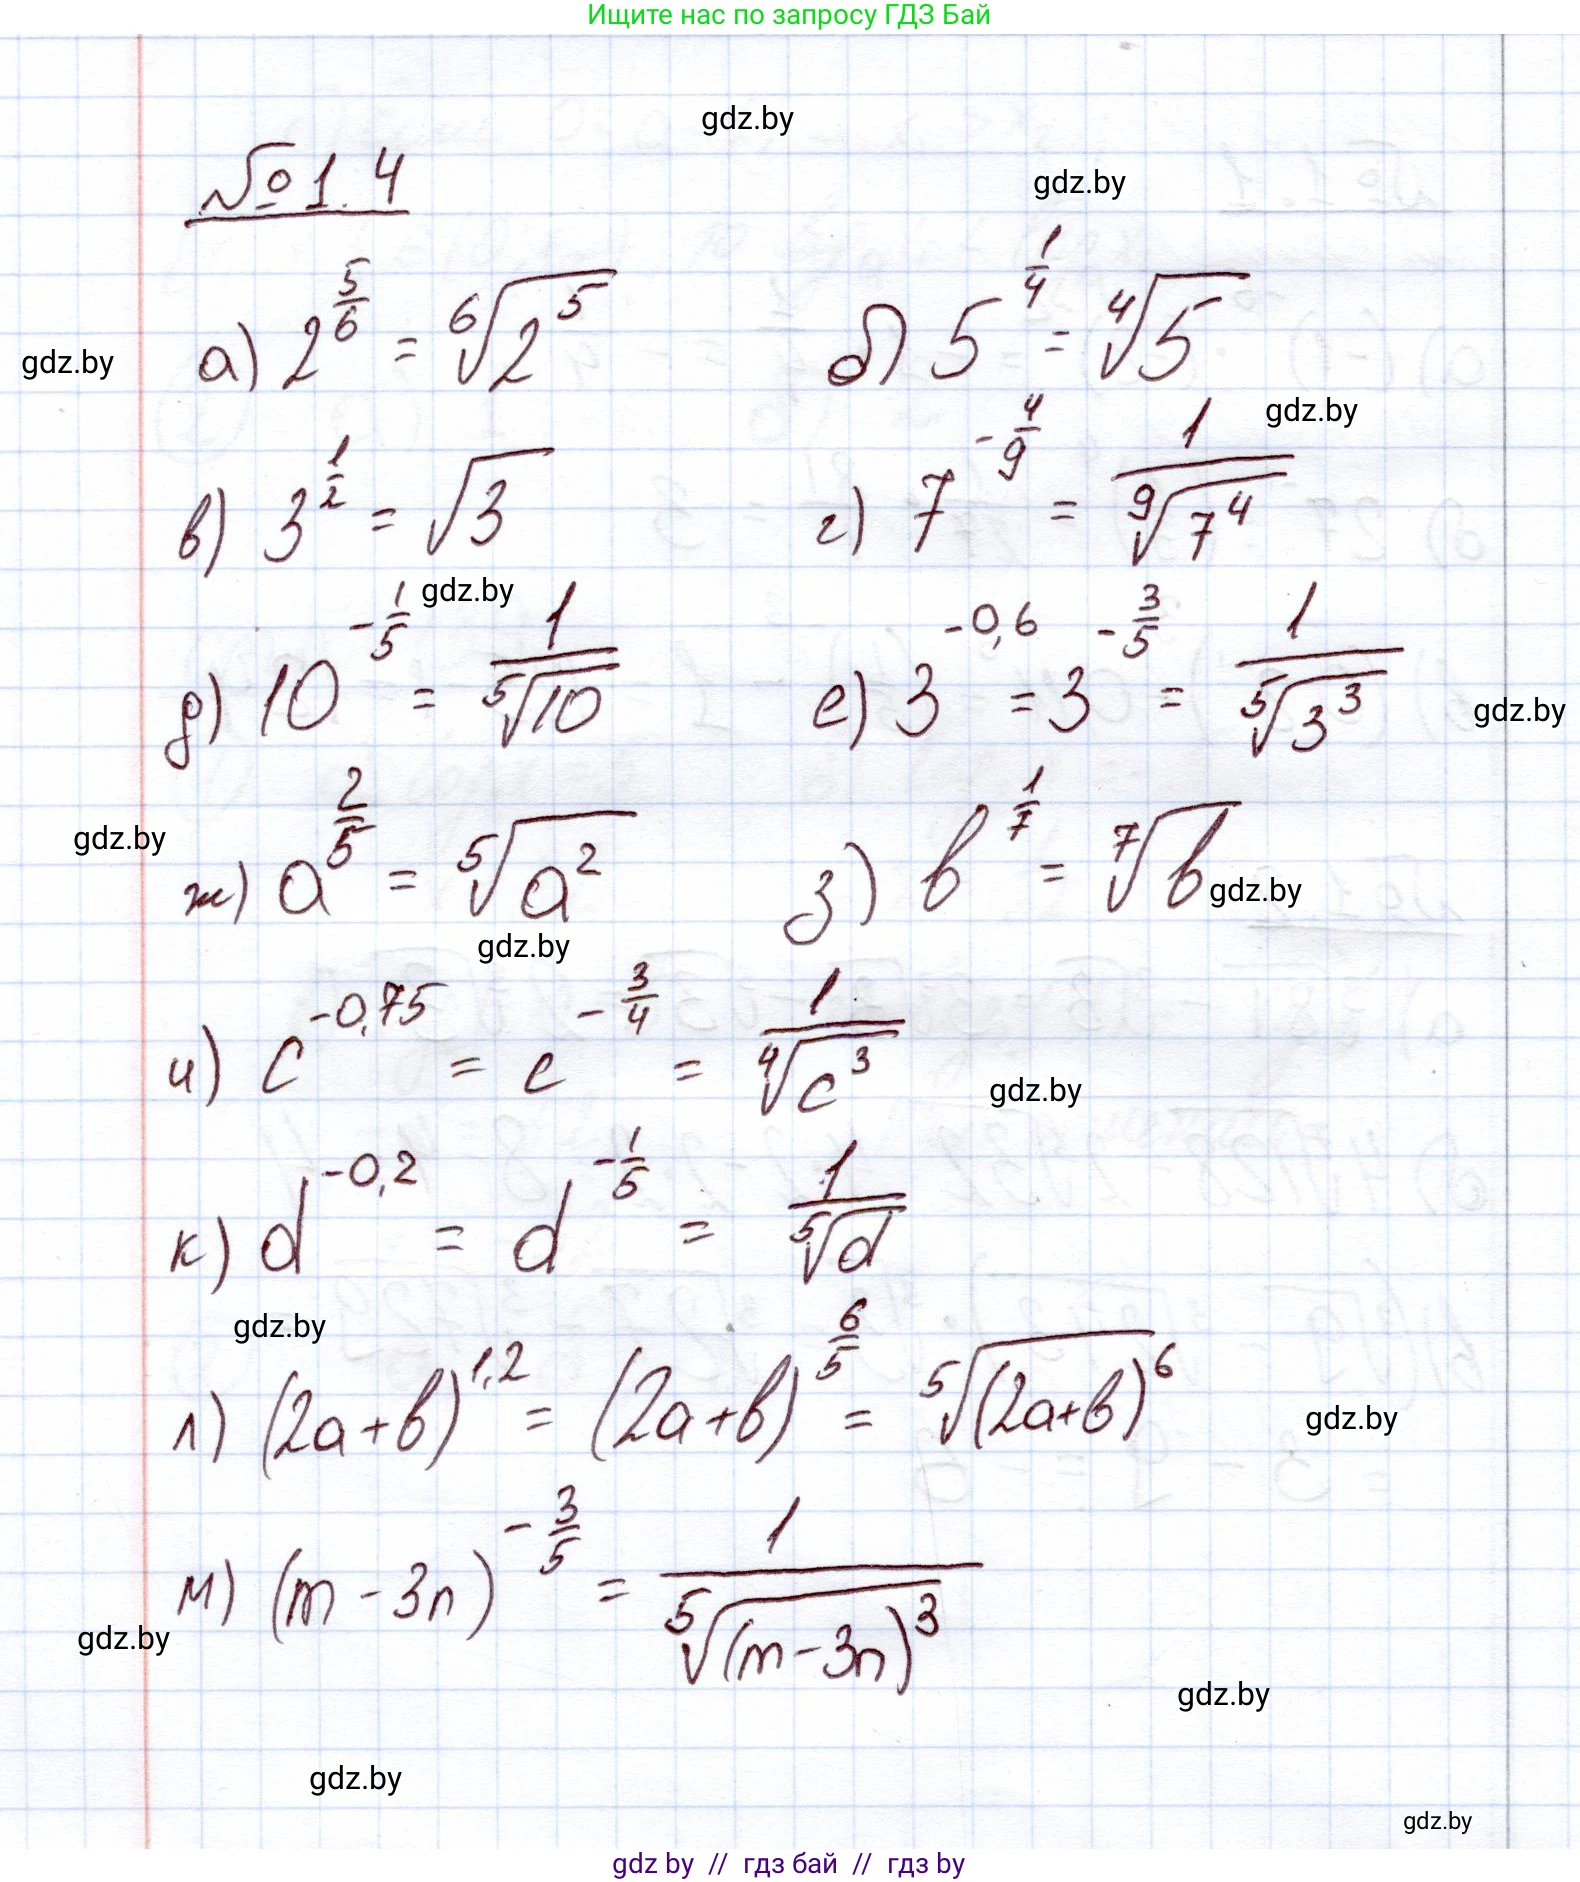 Ищите нас по запросу ГДЗ Бай
gdz.by
gdz.by
№ 1.4
а) 2^{5/6} = ⁶√(2^5)
б) 5^{1/4} = ⁴√5
gdz.by
gdz.by
в) 3^{1/2} = √3
г) 7^{-4/9} = 1/⁹√(7^4)
gdz.by
д) 10^{-1/5} = 1/⁵√10
е) 3^{-0,6} = 3^{-3/5} = 1/⁵√(3^3)
gdz.by
gdz.by
ж) a^{2/5} = ⁵√(a^2)
з) b^{1/7} = ⁷√b
gdz.by
gdz.by
и) c^{-0,75} = c^{-3/4} = 1/⁴√(c^3)
gdz.by
к) d^{-0,2} = d^{-1/5} = 1/⁵√d
gdz.by
л) (2a+b)^{1,2} = (2a+b)^{6/5} = ⁵√((2a+b)^6)
gdz.by
м) (m-3n)^{-3/5} = 1/⁵√((m-3n)^3)
gdz.by
gdz.by
gdz.by
gdz.by
gdz by // гдз бай // гдз by